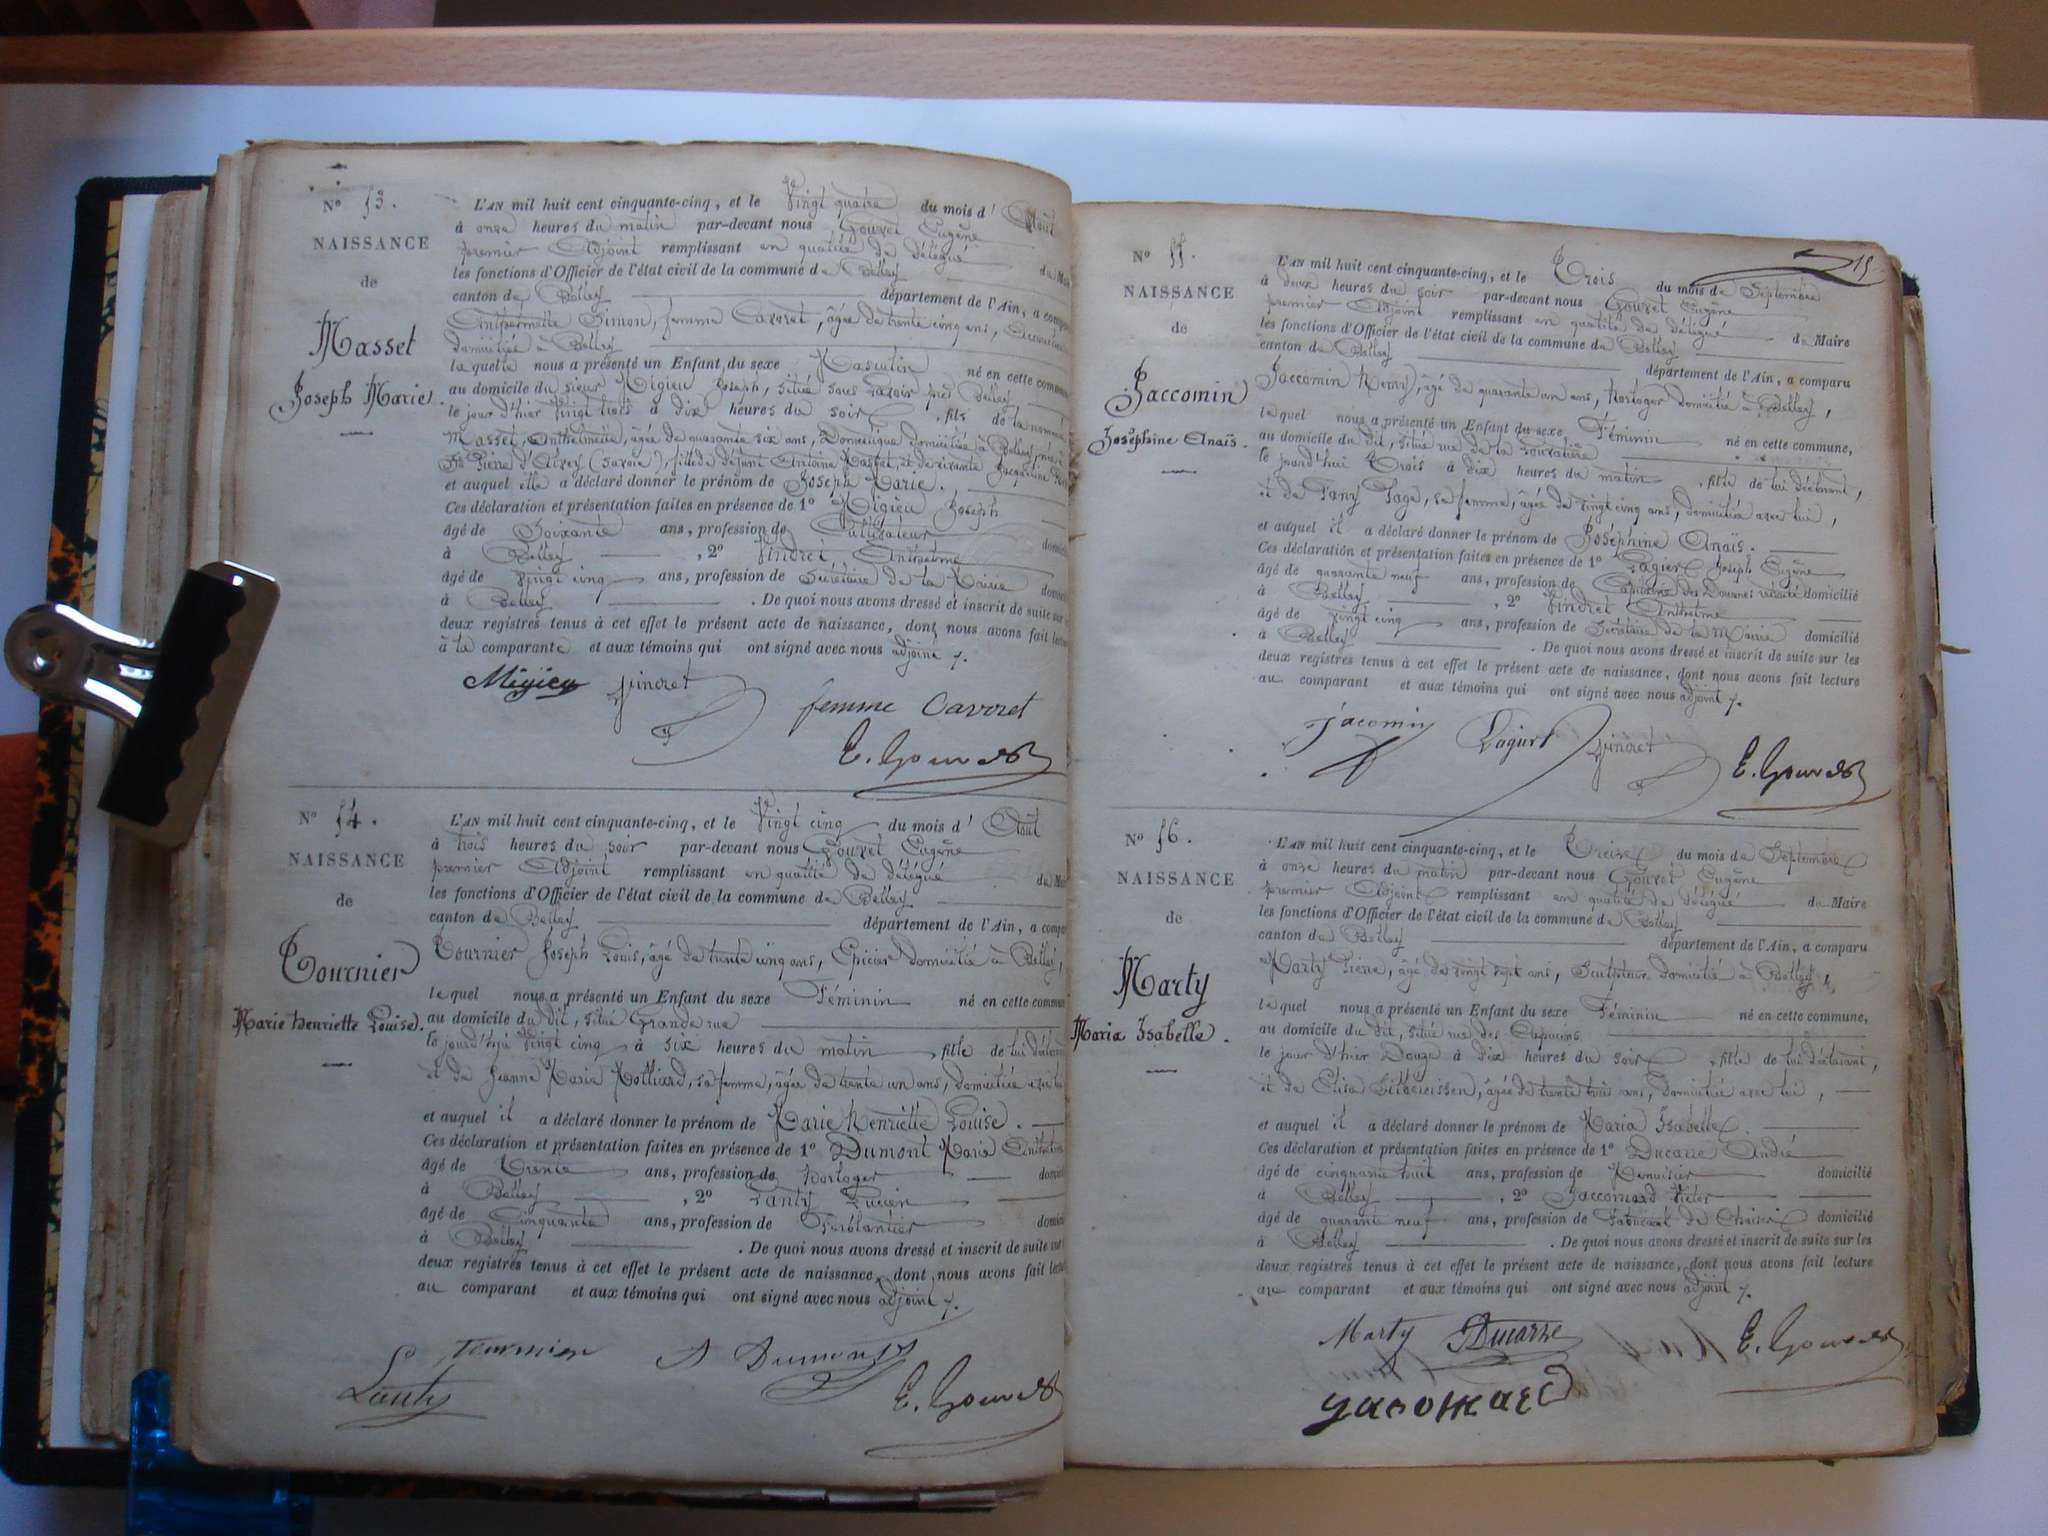 Nº 53.
NAISSANCE
de
Masset
Joseph Marie.
L'AN mil huit cent cinquante-cinq, et le Vingt quatre du mois d'Août
à onze heures du matin par-devant nous Gouvet Eugène
premier Adjoint remplissant en qualité de délégué du Maire
les fonctions d'Officier de l'état civil de la commune de Belley
canton de Belley département de l'Ain, a comparu
Simon, femme Cavoret, âgée de trente cinq ans,
domiciliée à Belley
laquelle nous a présenté un Enfant du sexe Masculin né en cette commune
au domicile du sieur Migieu Joseph, situé sous Savoir près Belley
le jour d'hier vingt trois à dix heures du soir, fils de la nommée
Masset, Anthelmette, âgée de quarante six ans, Domestique domiciliée à Belley, née à
St Pierre d' (Savoie), fille de défunt Antoine Masset, et de vivante Jacqueline
et auquel elle a déclaré donner le prénom de Joseph Marie.
Ces déclaration et présentation faites en présence de 1º Migieu Joseph
âgé de Soixante ans, profession de Cultivateur
à Belley, 2º Vindret Anthelme
âgé de vingt cinq ans, profession de Secrétaire de la Mairie
à Belley. De quoi nous avons dressé et inscrit de suite sur
deux registres tenus à cet effet le présent acte de naissance, dont nous avons fait lecture
à la comparante et aux témoins qui ont signé avec nous adjoint.
Migieu Vindret
femme Cavoret
E. Gouvet
Nº 54.
NAISSANCE
de
Tournier
Marie Henriette Louise.
L'AN mil huit cent cinquante-cinq, et le Vingt cinq du mois d'Août
à trois heures du soir par-devant nous Gouvet Eugène
premier Adjoint remplissant en qualité de délégué du
les fonctions d'Officier de l'état civil de la commune de Belley
canton de Belley département de l'Ain, a comparu
Tournier Joseph Louis, âgé de trente cinq ans, Epicier domicilié à Belley,
lequel nous a présenté un Enfant du sexe Féminin né en cette commune
au domicile du dit, situé Grande rue
le jourd'hui vingt cinq à six heures du matin, fille de lui déclarant
et de Jeanne Marie Molliard, sa femme, âgée de trente un ans, domiciliée avec lui
et auquel il a déclaré donner le prénom de Marie Henriette Louise.
Ces déclaration et présentation faites en présence de 1º Dumont Marie
âgé de trente ans, profession de horloger
à Belley, 2º Lanty Lucien
âgé de Cinquante ans, profession de Ferblantier
à Belley. De quoi nous avons dressé et inscrit de suite sur
deux registres tenus à cet effet le présent acte de naissance, dont nous avons fait lecture
au comparant et aux témoins qui ont signé avec nous adjoint.
Tournier A Dumont
Lanty
E. Gouvet
15
Nº 55.
NAISSANCE
de
Jaccomin
Joséphine Anaïs.
L'AN mil huit cent cinquante-cinq, et le Trois du mois de Septembre
à deux heures du soir par-devant nous Gouvet Eugène
premier Adjoint remplissant en qualité de délégué du Maire
les fonctions d'Officier de l'état civil de la commune de Belley
canton de Belley département de l'Ain, a comparu
Jaccomin Remy, âgé de quarante un ans, horloger domicilié à Belley,
lequel nous a présenté un Enfant du sexe Féminin né en cette commune,
au domicile du dit, situé rue de la
le jourd'hui Trois à dix heures du matin, fille de lui déclarant,
et de Fany Page, sa femme, âgée de vingt cinq ans, domiciliée avec lui,
et auquel il a déclaré donner le prénom de Joséphine Anaïs.
Ces déclaration et présentation faites en présence de 1º Joseph Eugène
âgé de quarante neuf ans, profession de Capitaine des Douanes retraité domicilié
à Belley, 2º Vindret Anthelme
âgé de vingt cinq ans, profession de Secrétaire de la Mairie domicilié
à Belley. De quoi nous avons dressé et inscrit de suite sur les
deux registres tenus à cet effet le présent acte de naissance, dont nous avons fait lecture
au comparant et aux témoins qui ont signé avec nous adjoint.
Jacomin Vindret E. Gouvet
Nº 56.
NAISSANCE
de
Marty
Maria Isabelle.
L'AN mil huit cent cinquante-cinq, et le Treize du mois de Septembre
à onze heures du matin par-devant nous Gouvet Eugène
premier Adjoint remplissant en qualité de délégué du Maire
les fonctions d'Officier de l'état civil de la commune de Belley
canton de Belley département de l'Ain, a comparu
Marty Pierre, âgé de vingt sept ans, Sculpteur domicilié à Belley,
lequel nous a présenté un Enfant du sexe Féminin né en cette commune,
au domicile du dit, situé rue des Capucins
le jour d'hier Douze à dix heures du soir, fille de lui déclarant,
et de Elisa, âgée de trente trois ans, domiciliée avec lui,
et auquel il a déclaré donner le prénom de Maria Isabelle.
Ces déclaration et présentation faites en présence de 1º Ducarre André
âgé de cinquante huit ans, profession de Menuisier domicilié
à Belley, 2º Jaccomard Victor
âgé de quarante neuf ans, profession de Fabricant de Chaises domicilié
à Belley. De quoi nous avons dressé et inscrit de suite sur les
deux registres tenus à cet effet le présent acte de naissance, dont nous avons fait lecture
au comparant et aux témoins qui ont signé avec nous adjoint.
Marty Ducarre E. Gouvet